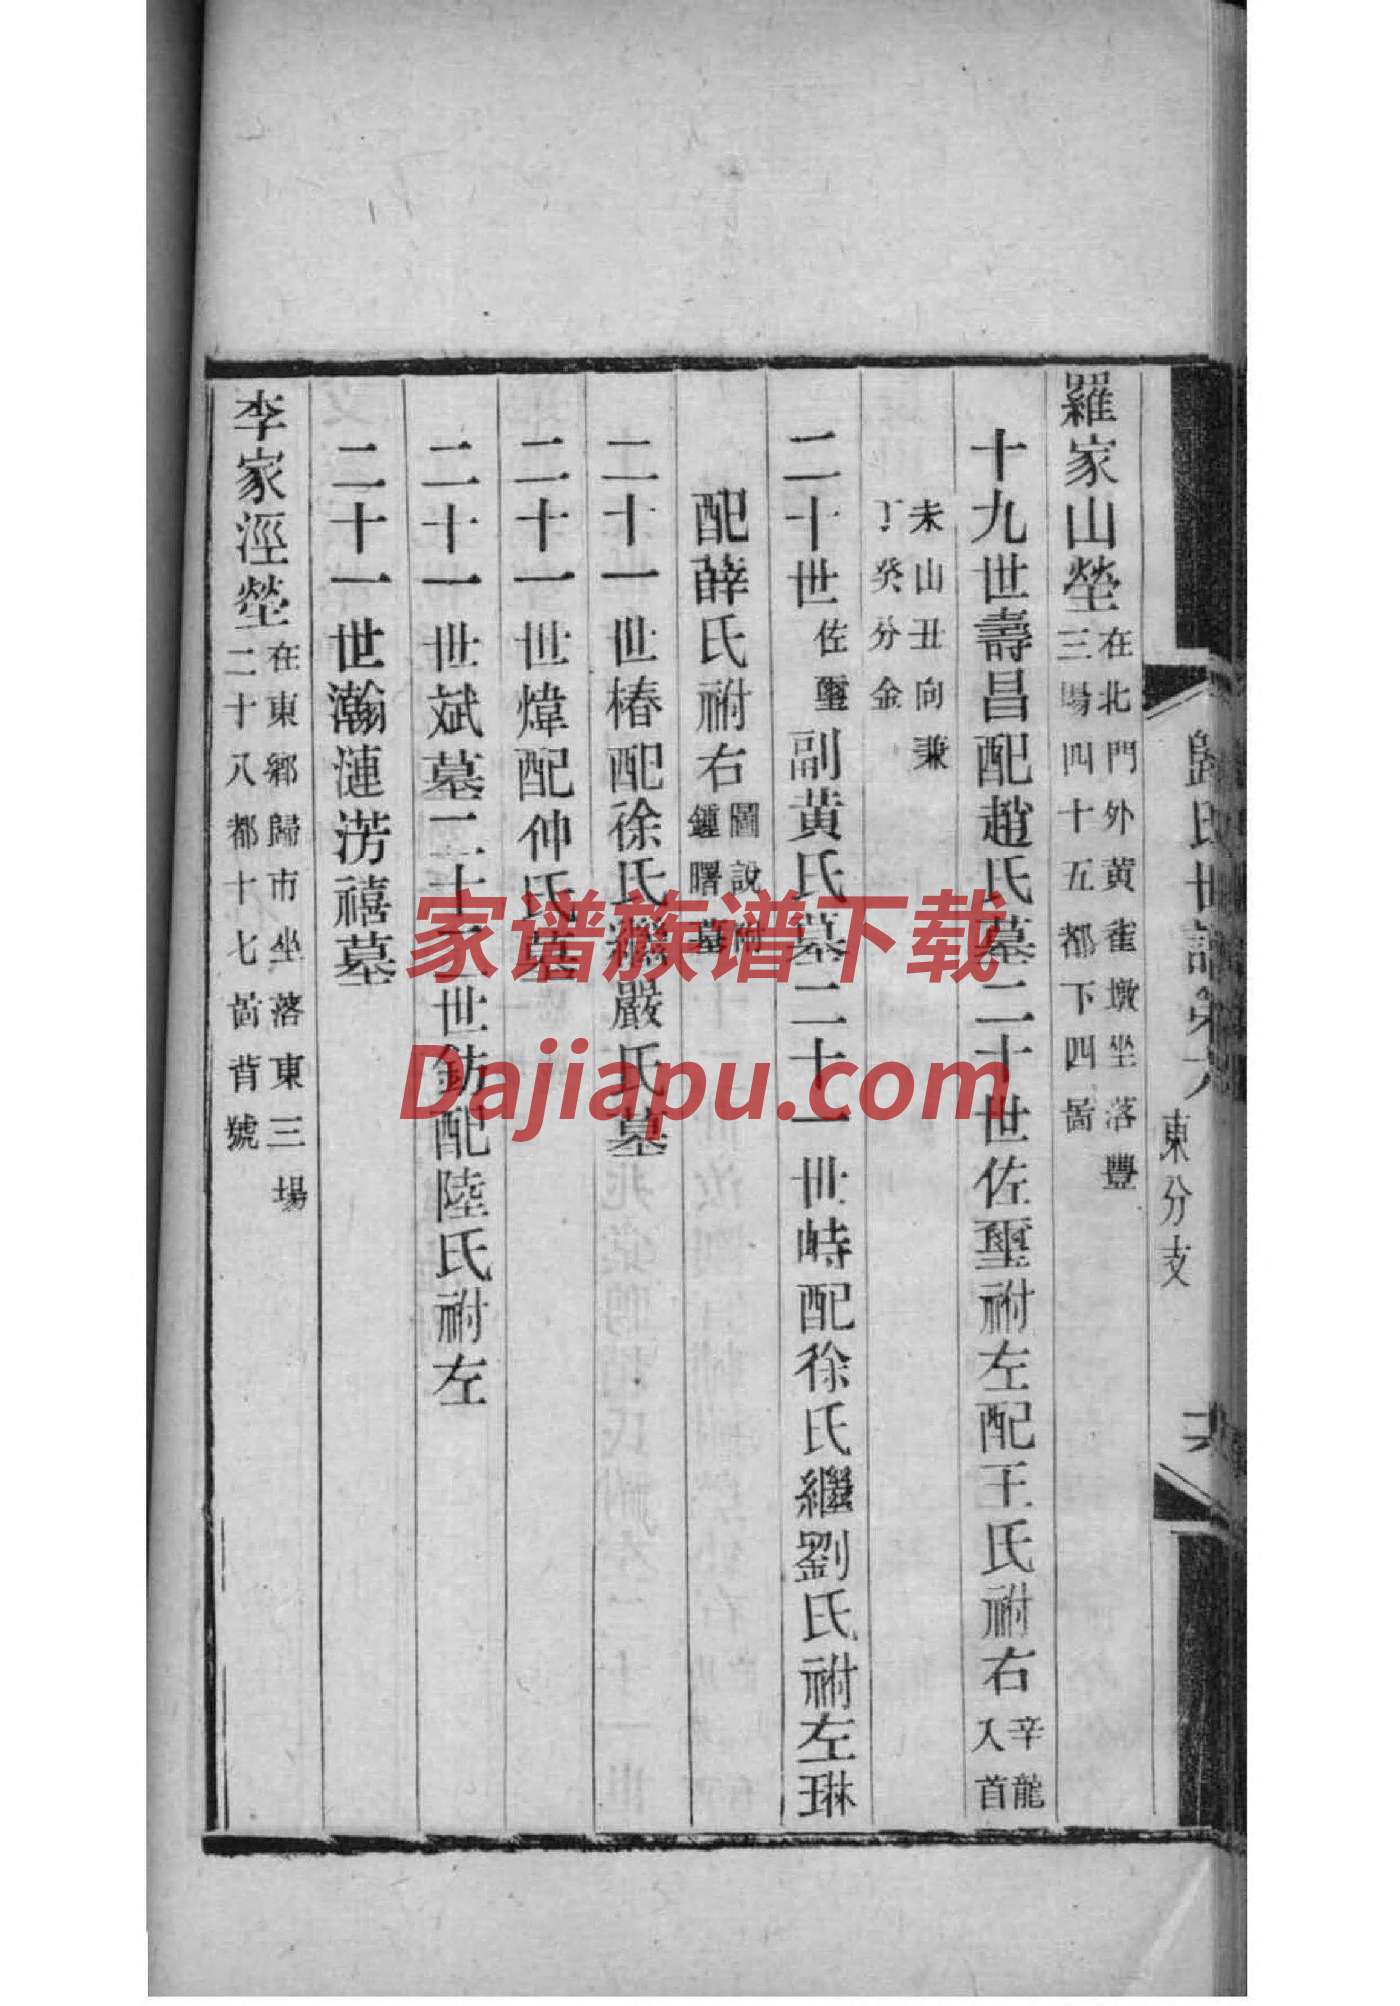 羅家山塋在北門外黃雀墩坐落豐
三場四十五都下四啚
十九世壽昌配趙氏墓二十世佐璽祔左配王氏祔右辛龍
入首
未山丑向兼
丁癸分金
二十世佐璽副黃氏墓二十一世峙配徐氏繼劉氏祔左琳
配薛氏祔右圖說附
鍾曙墓
二十一世椿配徐氏繼嚴氏墓
二十一世煒配仲氏墓
二十一世斌墓二十二世鈁配陸氏祔左
二十一世瀚漣淓禧墓
李家涇塋在東鄉歸市坐落東三場
二十八都十七啚背號
歸氏世譜卷六
東分支
家谱族谱下载
Dajiapu.com